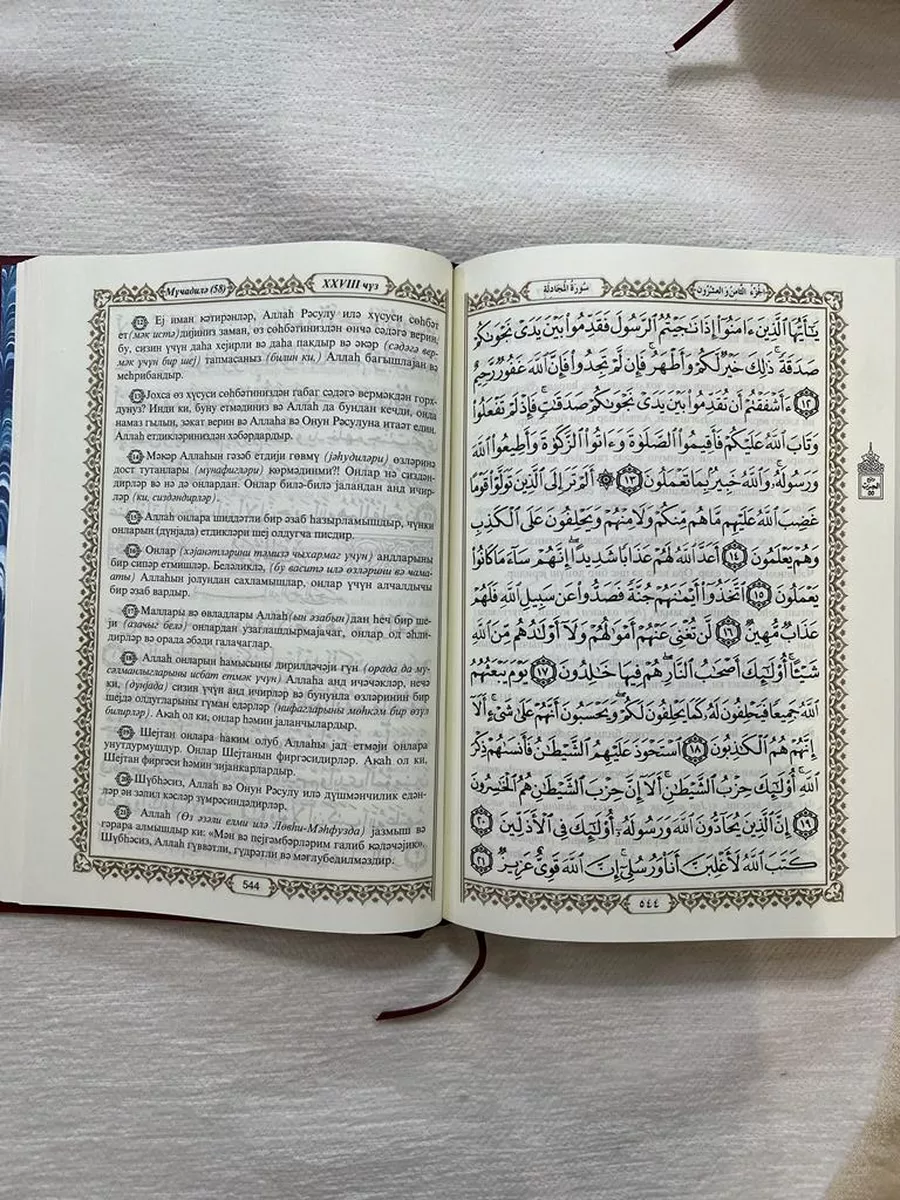 Мүчадилә (58)
XXVIII чүз
12 Еј иман кәтирәнләр, Аллаһ Рәсулу илә хүсуси сөһбәт
ет(мәк истә)дијиниз заман, өз сөһбәтиниздән өнчә сәдәгә верин,
бу, сизин үчүн даһа хејирли вә даһа пакдыр вә әкәр (сәдәгә вер-
мәк үчүн бир шеј) тапмасаныз (билин ки,) Аллаһ бағышлајан вә
меһрибандыр.
13 Јохса өз хүсуси сөһбәтиниздән габаг сәдәгә вермәкдән горх-
дунуз? Инди ки, буну етмәдиниз вә Аллаһ да бундан кечди, онда
намаз гылын, зәкат верин вә Аллаһа вә Онун Рәсулуна итаәт един.
Аллаһ етдикләриниздән хәбәрдардыр.
14 Мәкәр Аллаһын гәзәб етдији гөвмү (јәһудиләри) өзләринә
дост тутанлары (мунафигләри) көрмәдинми?! Онлар нә сиздән-
дирләр вә нә дә онлардан. Онлар билә-билә јаландан анд ичир-
ләр (ки, сиздәндирләр).
15 Аллаһ онлара шиддәтли бир әзаб һазырламышдыр, чүнки
онларын (дүнјада) етдикләри шеј олдугча писдир.
16 Онлар (хәјанәтләрини тәмизә чыхармаг үчүн) андларыны
бир сипәр етмишләр. Беләликлә, (бу васитә илә өзләрини вә чама-
аты) Аллаһын јолундан сахламышлар, онлар үчүн алчалдычы
бир әзаб вардыр.
17 Маллары вә овладлары Аллаһ(ын әзабын)дан һеч бир ше-
ји (азачыг белә) онлардан узаглашдырмајачаг, онлар од әһли-
дирләр вә орада әбәди галачаглар.
18 Аллаһ онларын һамысыны дирилдәчәји гүн (орада да му-
сәлманлыгларыны исбат етмәк үчүн) Аллаһа анд ичәчәкләр, нечә
ки, (дүнјада) сизин үчүн анд ичирләр вә бунунла өзләринин бир
шејдә олдугларыны гүман едәрләр (нифагларыны мөһкәм бир өзүл
билирләр). Акаһ ол ки, онлар һәмин јаланчылардыр.
19 Шејтан онлара һаким олуб Аллаһы јад етмәји онлара
унутдурмушдур. Онлар Шејтанын фиргәсидирләр. Акаһ ол ки,
Шејтан фиргәси һәмин зијанкарлардыр.
20 Шүбһәсиз, Аллаһ вә Онун Рәсулу илә дүшмәнчилик едән-
ләр ән зәлил кәсләр зүмрәсиндәдирләр.
21 Аллаһ (Өз әзәли елми илә Лөвһи-Мәһфузда) јазмыш вә
гәрара алмышдыр ки: «Мән вә пејғәмбәрләрим галиб кәләчәјик».
Шүбһәсиз, Аллаһ гүввәтли, гүдрәтли вә мәғлубедилмәздир.
544
سُورَةُ المُجَادلة
الجُزْءُ الثَّامِنُ وَالعِشْرُونَ
يَٰٓأَيُّهَا ٱلَّذِينَ ءَامَنُوٓا۟ إِذَا نَٰجَيْتُمُ ٱلرَّسُولَ فَقَدِّمُوا۟ بَيْنَ يَدَىْ نَجْوَىٰكُمْ
صَدَقَةً ۚ ذَٰلِكَ خَيْرٌ لَّكُمْ وَأَطْهَرُ ۚ فَإِن لَّمْ تَجِدُوا۟ فَإِنَّ ٱللَّهَ غَفُورٌ رَّحِيمٌ
١٢ ءَأَشْفَقْتُمْ أَن تُقَدِّمُوا۟ بَيْنَ يَدَىْ نَجْوَىٰكُمْ صَدَقَٰتٍ ۚ فَإِذْ لَمْ تَفْعَلُوا۟
وَتَابَ ٱللَّهُ عَلَيْكُمْ فَأَقِيمُوا۟ ٱلصَّلَوٰةَ وَءَاتُوا۟ ٱلزَّكَوٰةَ وَأَطِيعُوا۟ ٱللَّهَ
وَرَسُولَهُۥ ۚ وَٱللَّهُ خَبِيرٌۢ بِمَا تَعْمَلُونَ ١٣ ۞ أَلَمْ تَرَ إِلَى ٱلَّذِينَ تَوَلَّوْا۟ قَوْمًا
غَضِبَ ٱللَّهُ عَلَيْهِم مَّا هُم مِّنكُمْ وَلَا مِنْهُمْ وَيَحْلِفُونَ عَلَى ٱلْكَذِبِ
وَهُمْ يَعْلَمُونَ ١٤ أَعَدَّ ٱللَّهُ لَهُمْ عَذَابًا شَدِيدًا ۖ إِنَّهُمْ سَآءَ مَا كَانُوا۟
يَعْمَلُونَ ١٥ ٱتَّخَذُوٓا۟ أَيْمَٰنَهُمْ جُنَّةً فَصَدُّوا۟ عَن سَبِيلِ ٱللَّهِ فَلَهُمْ
عَذَابٌ مُّهِينٌ ١٦ لَّن تُغْنِىَ عَنْهُمْ أَمْوَٰلُهُمْ وَلَآ أَوْلَٰدُهُم مِّنَ ٱللَّهِ
شَيْـًٔا ۚ أُو۟لَٰٓئِكَ أَصْحَٰبُ ٱلنَّارِ ۖ هُمْ فِيهَا خَٰلِدُونَ ١٧ يَوْمَ يَبْعَثُهُمُ
ٱللَّهُ جَمِيعًا فَيَحْلِفُونَ لَهُۥ كَمَا يَحْلِفُونَ لَكُمْ ۖ وَيَحْسَبُونَ أَنَّهُمْ عَلَىٰ شَىْءٍ ۚ أَلَآ
إِنَّهُمْ هُمُ ٱلْكَٰذِبُونَ ١٨ ٱسْتَحْوَذَ عَلَيْهِمُ ٱلشَّيْطَٰنُ فَأَنسَىٰهُمْ ذِكْرَ
ٱللَّهِ ۚ أُو۟لَٰٓئِكَ حِزْبُ ٱلشَّيْطَٰنِ ۚ أَلَآ إِنَّ حِزْبَ ٱلشَّيْطَٰنِ هُمُ ٱلْخَٰسِرُونَ
١٩ إِنَّ ٱلَّذِينَ يُحَآدُّونَ ٱللَّهَ وَرَسُولَهُۥٓ أُو۟لَٰٓئِكَ فِى ٱلْأَذَلِّينَ ٢٠
كَتَبَ ٱللَّهُ لَأَغْلِبَنَّ أَنَا۠ وَرُسُلِىٓ ۚ إِنَّ ٱللَّهَ قَوِىٌّ عَزِيزٌ ٢١
٥٤٤